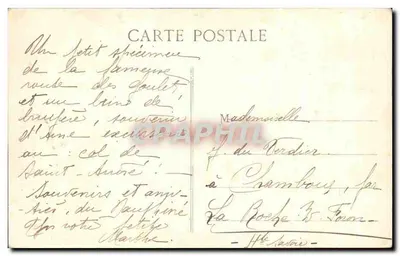 CARTE POSTALE
Un petit spécimen
de la fameuse
route des Goulet,
et un brin de
bruyère, souvenir
d'une excursion
au : col de
Saint-André!
Souvenirs et ami-
tiés, du Dauphiné
de votre petite
Marthe
Mademoiselle
J. du Verdier
à Chamboux, par
La Roche s/ Foron
Hte Savoie